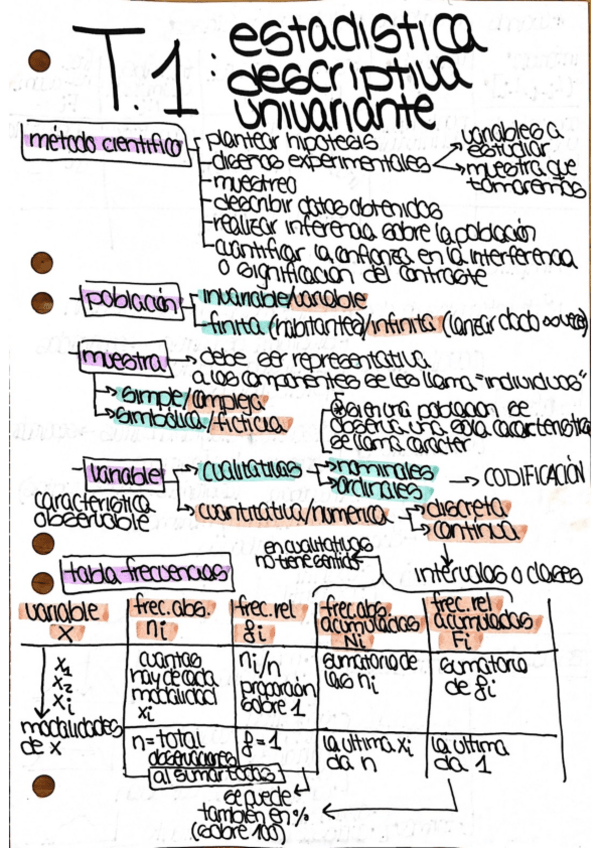 T.1: estadística
descriptiva
univariante
método científico
plantear hipotesis
diseños experimentales
variables a
estudiar
muestra que
tomaremos
muestreo
describir datos obtenidos
realizar inferencia sobre la población
cuantificar la confianza en la interferencia
o significación del contraste
población
invariable/variable
finita (habitantes)/infinita (lanzar dado ∞ veces)
muestra
debe ser representativa
a los componentes se les llama "individuos"
simple/compleja
simbólica/ficticia
si en una población se
observa una sola característica
se llama caracter
variable
característica
observable
cualitativas
nominales
ordinales
CODIFICACIÓN
cuantitativa/numerica
discreta
continua
intervalos o clases
en cualitativas
no tiene sentido
tabla frecuencias
variable
x
frec.abs.
ni
frec.rel
fi
frec.abs.
acumuladas
Ni
frec.rel
acumuladas
Fi
x1
x2
xi
modalidades
de x
cuantas
hay de cada
modalidad
xi
ni/n
proporción
sobre 1
sumatorio de
las ni
sumatorio
de fi
n=total
observaciones
al sumar todas
f=1
la ultima xi
da n
la ultima
da 1
se puede
también en %
(sobre 100)